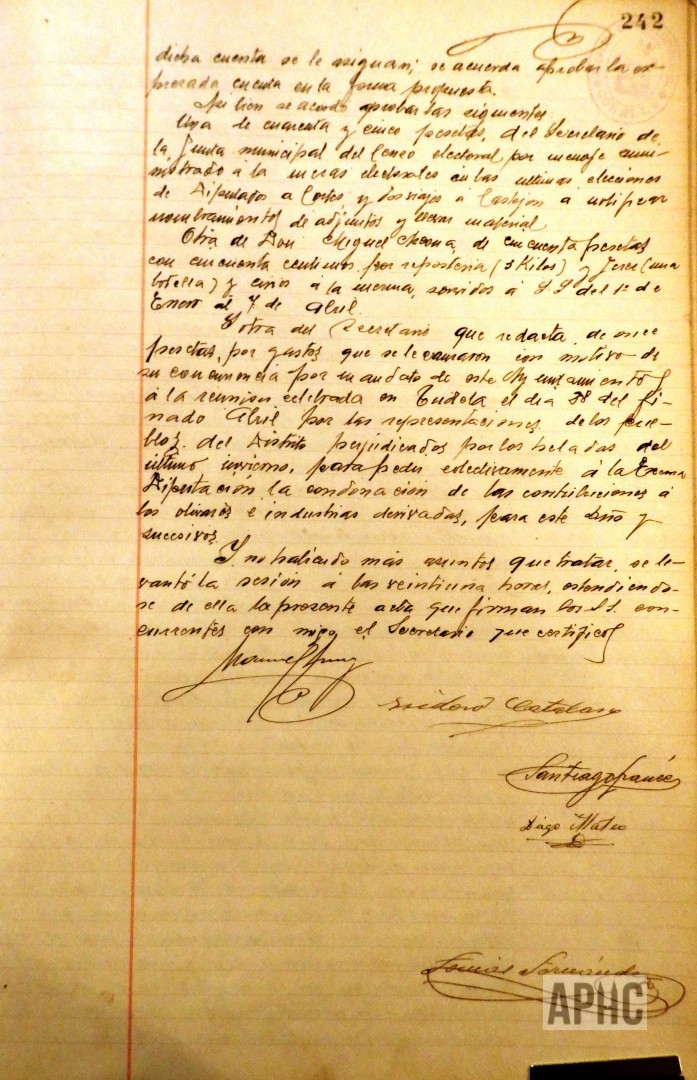 242
dicha cuenta se le asignan; se acuerda aprobar la ex-
presada cuenta en la forma propuesta.
bien se acordó aprobar las siguientes
Una de cuarenta y cinco pesetas, del Secretario de
la Junta municipal del Censo electoral por menaje sumi-
nistrado á la mesas electorales en las ultimas elecciones
de Diputados a Cortes, y dos viajes a Castejon a notificar
nombramientos de adjuntos y llevar material
Otra de Don Miguel de cincuenta pesetas
con cincuenta centimos por reposteria (3 Kilos) y Jerez (una
botella) y á la misma, servidos á S.S. del 1º de
Enero al 7 de Abril.
Y otra del Secretario que redacta, de once
pesetas, por gastos que se le causaron con motivo de
su concurrencia por mandato de este Ayuntamiento
á la reunion celebrada en Tudela el dia 28 del fi-
nado Abril por las representaciones de los pue-
blos del Distrito perjudicados por los heladas del
último invierno, para pedir colectivamente á la Excma
Diputación la condonación de las contribuciones á
los olivares e industrias derivadas, para este año y
sucesivos
Y no habiendo más asuntos que tratar, se le-
vantó la sesión á las veintiuna horas, estendiendo-
se de ella la presente acta que firman los S.S. con-
currentes con migo el Secretario que certifico
Manuel
Isidoro Catalan
Santiago
Diego Mateo
Tomás Fernández
APHC